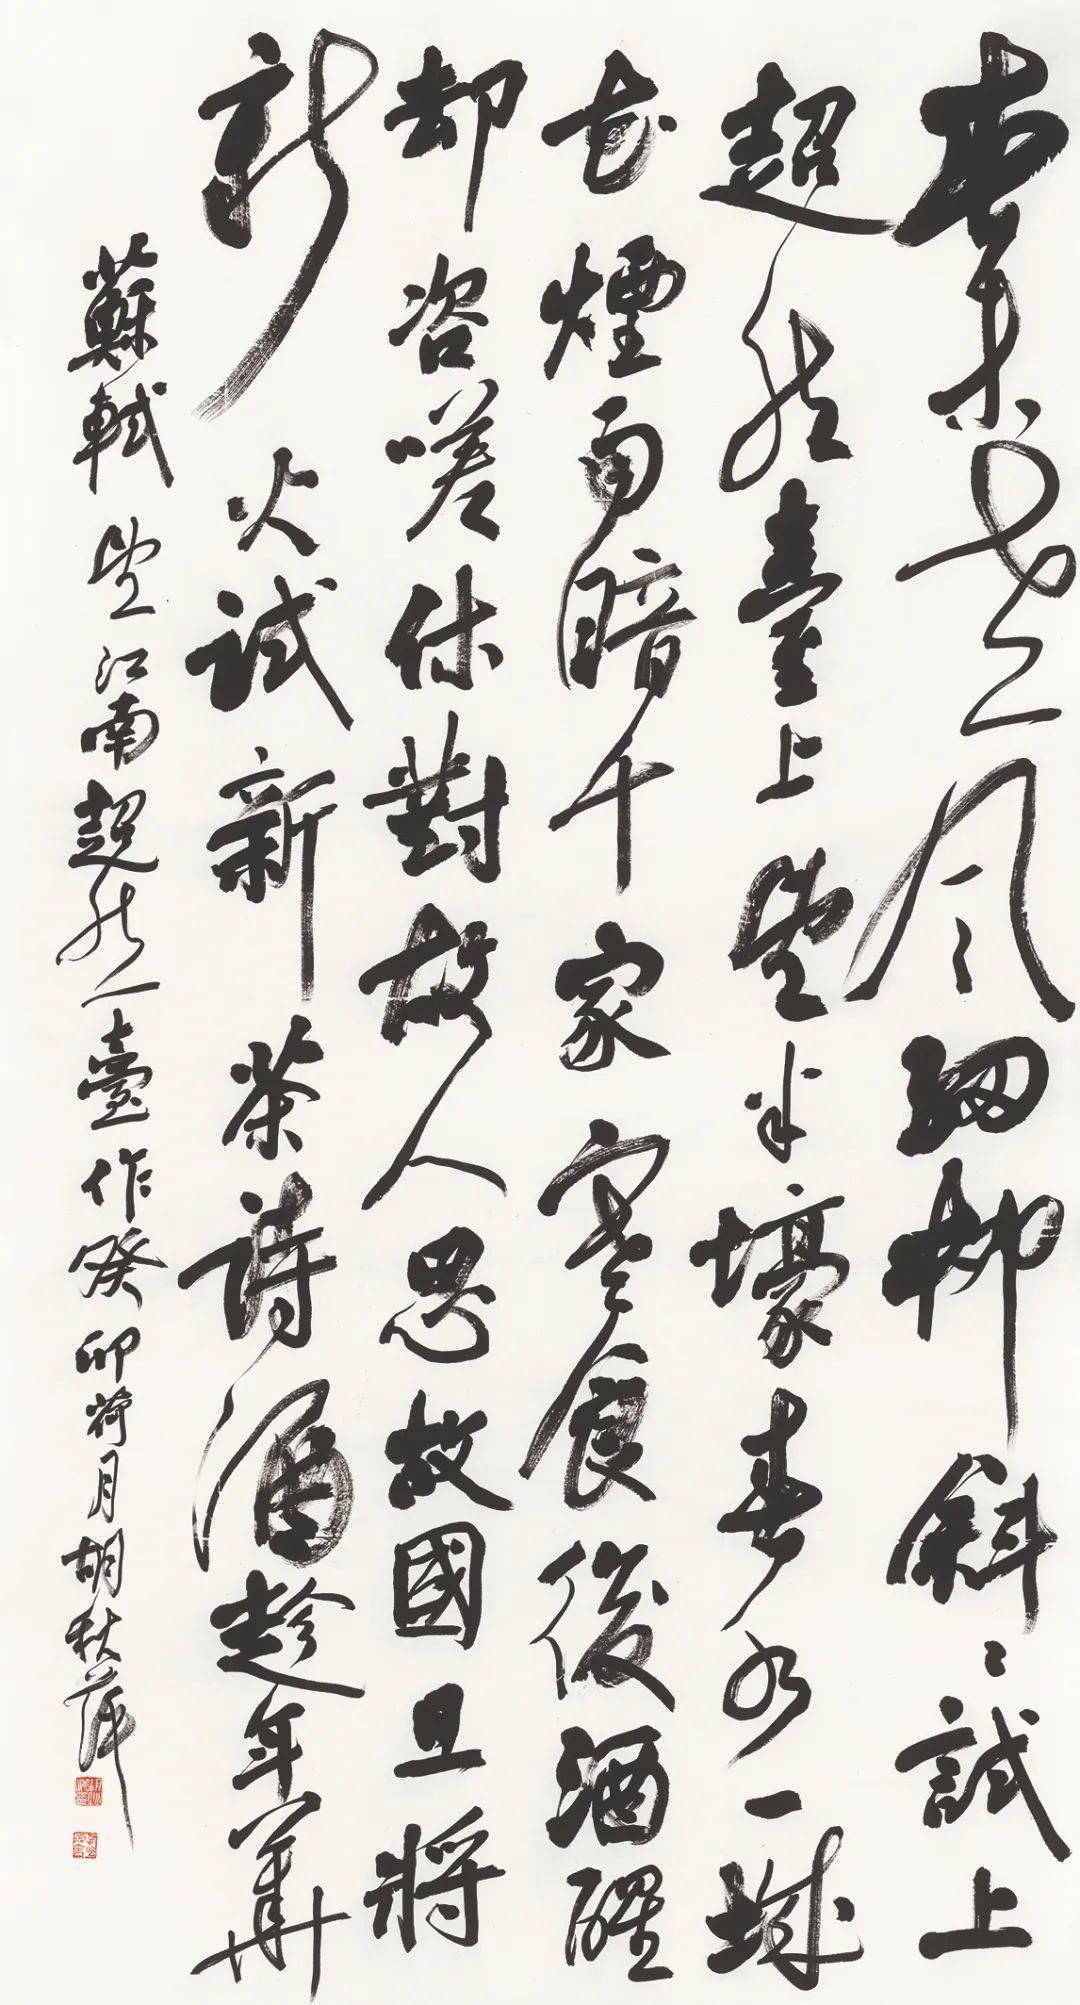 春未老風細柳斜斜試上
超然臺上望半壕春水一城
花煙雨暗千家寒食後酒醒
却咨嗟休對故人思故國且將
新火試新茶詩酒趁年華
蘇軾望江南超然臺作癸卯荷月胡秋萍